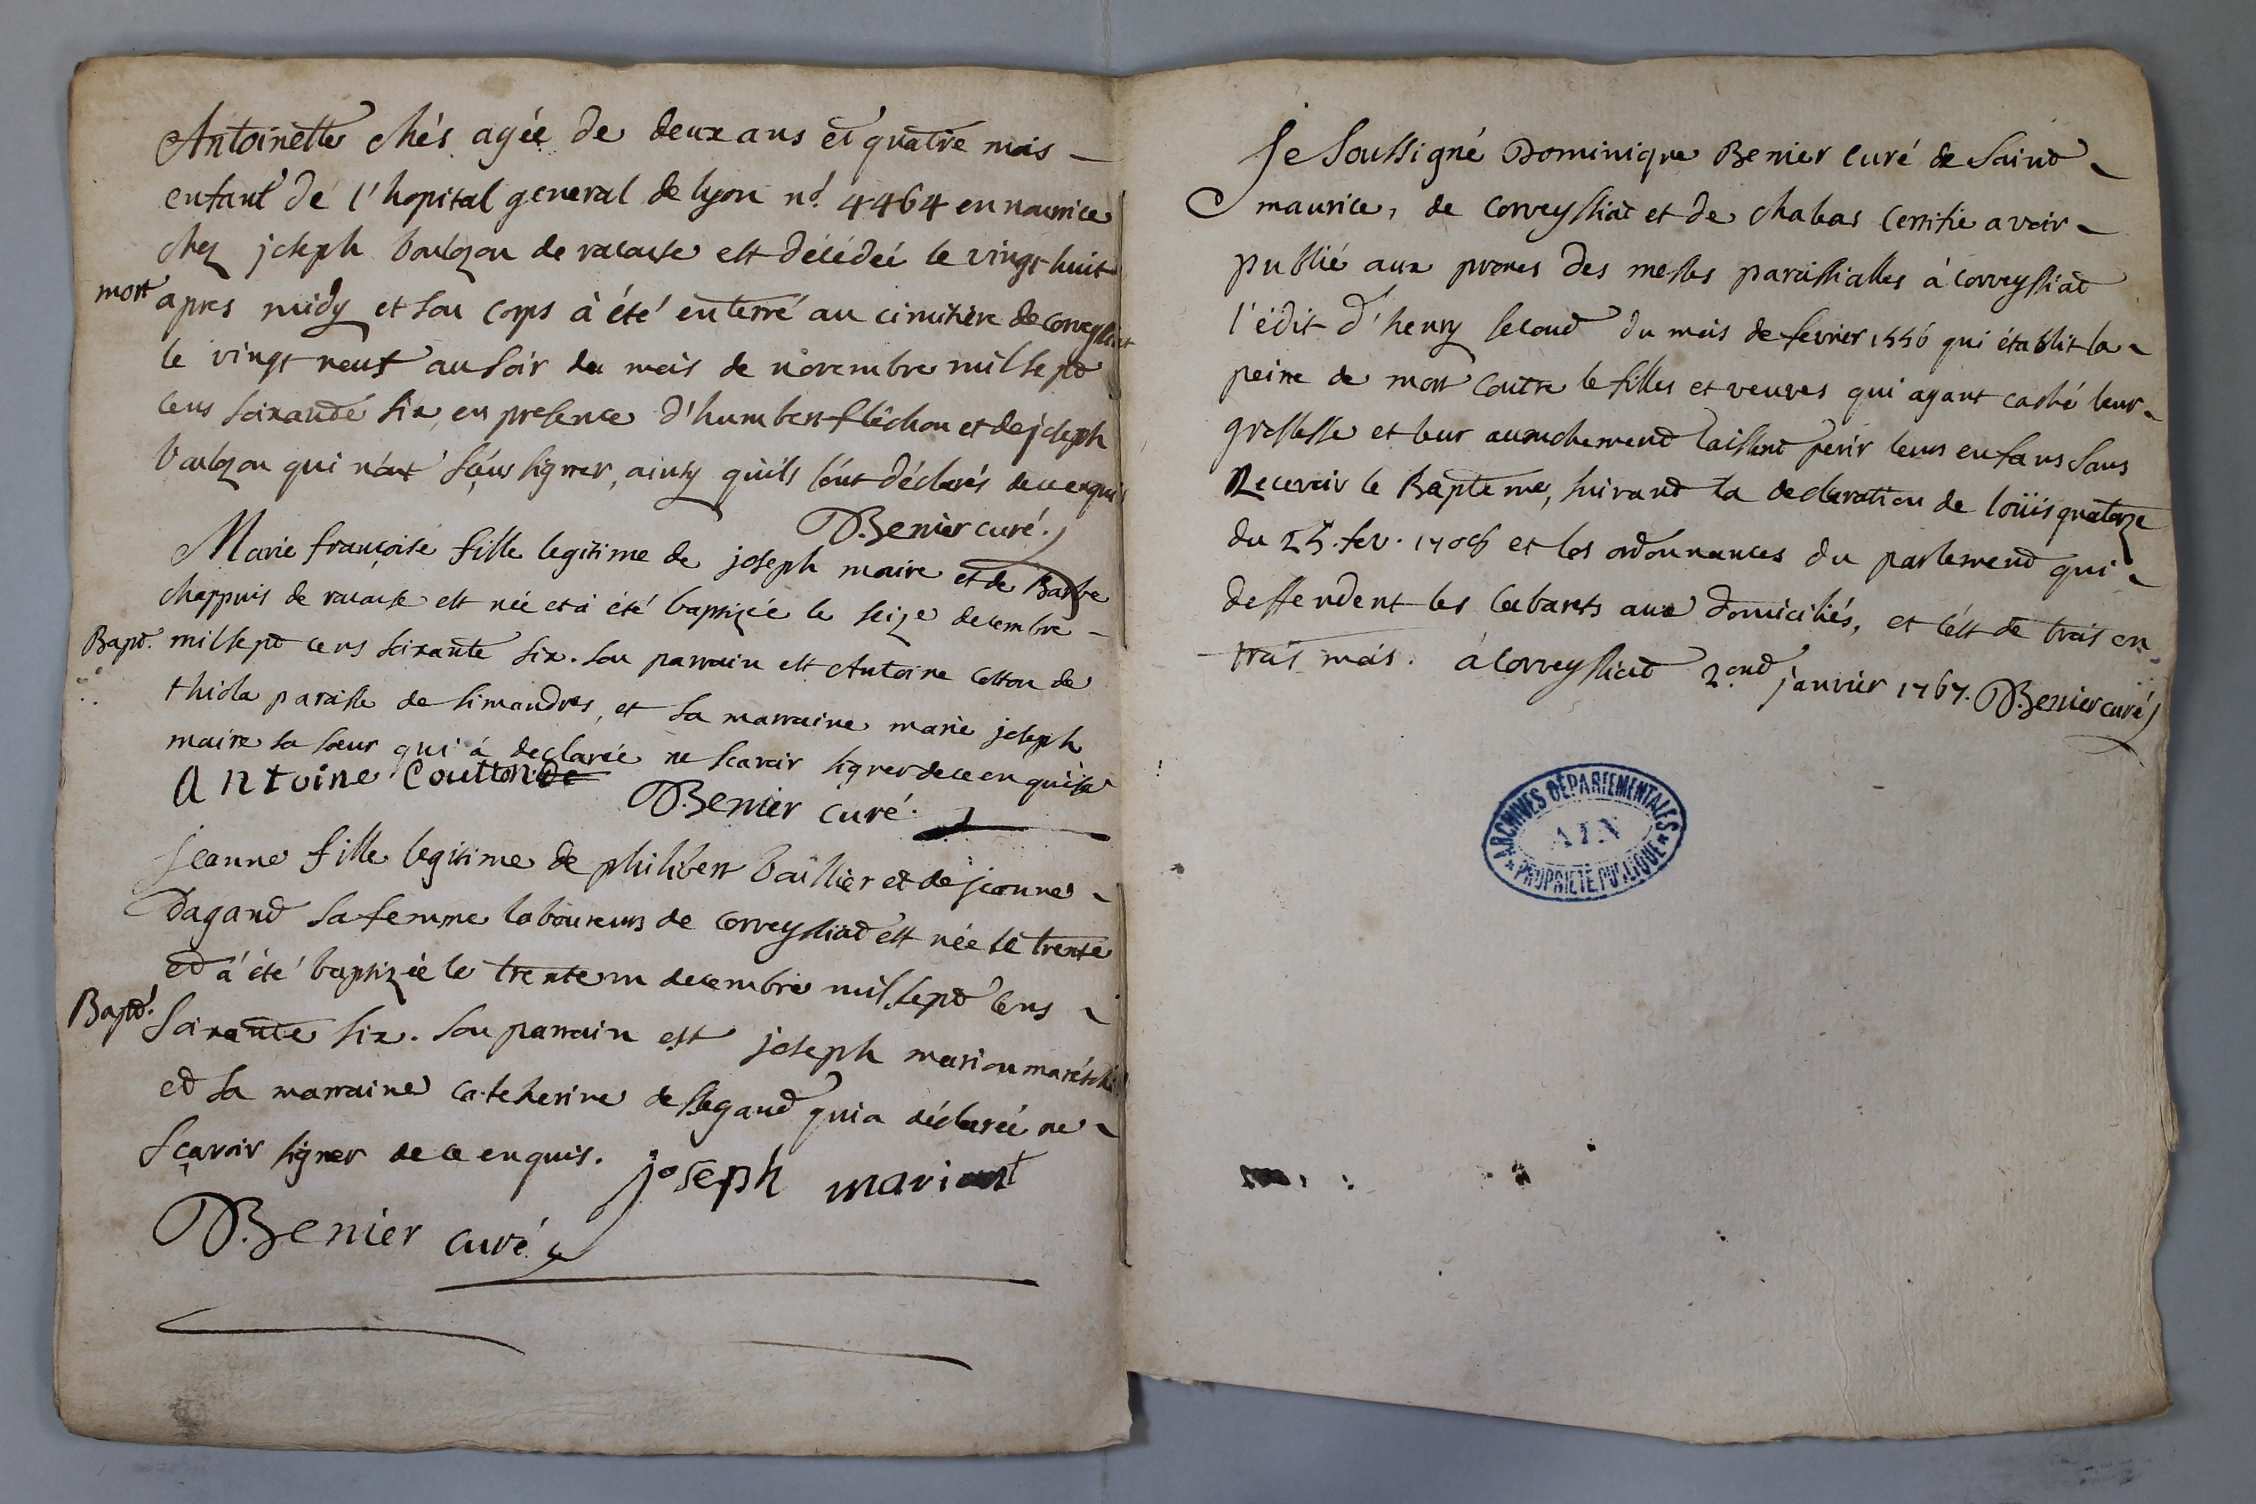 Antoinette chés agée de deux ans et quatre mois
enfant de l'hopital general de lyon no. 4464 en nourrice
chez joseph boulzon de racouse est décédée le vingt huit
mort
apres midy et son corps à été enterré au cimitière de correyssiat
le vingt neuf au soir du mois de novembre mil sept
cens soixante six, en presence d'humbert fléchon et de joseph
boulzon qui n'ont sçeus signer, ainsy qu'ils l'ont déclarés de ce enquis
D. Benier curé.
Marie françoise fille legitime de joseph maire et de Barbe
chappuis de racouse est née et à été baptizée le seize decembre
Bapt.
mil sept cens soixante six. son parrain est Antoine cotton de
thiola paroisse de simandres, et sa marraine marie joseph
maire sa sœur qui à declarée ne scavoir signer de ce enquise
Antoine Coutton
D. Benier curé.
jeanne fille legitime de philibert baillier et de jeanne
dagand sa femme laboureurs de correyssiat est née le trente
et à été baptizée le trente un decembre mil sept cens
Bapt.
soixante six. son parrain est joseph marion maréchal
et sa marraine catherine dagand qui a déclarée ne
sçavoir signer de ce enquis.
joseph mariont
D. Benier curé
Je soussigné Dominique Benier curé de saint
maurice, de correyssiat et de chalas certifie avoir
publié aux prones des messes paroissialles à correyssiat
l'édit d'henry second du mois de fevrier 1556 qui établit la
peine de mort contre le filles et veuves qui ayant caché leur
grossesse et leur accouchement laissent périr leurs enfans sans
Recevoir le Bapteme, suivant la declaration de loüis quatorze
du 25. fev. 1708 et les ordonnances du parlement qui
deffendent les cabarets aux domiciliés, et c'est de trois en
trois mois. à correyssiat 2ond janvier 1767. D. Benier curé
ARCHIVES DÉPARTEMENTALES
AIN
PROPRIÉTÉ PUBLIQUE